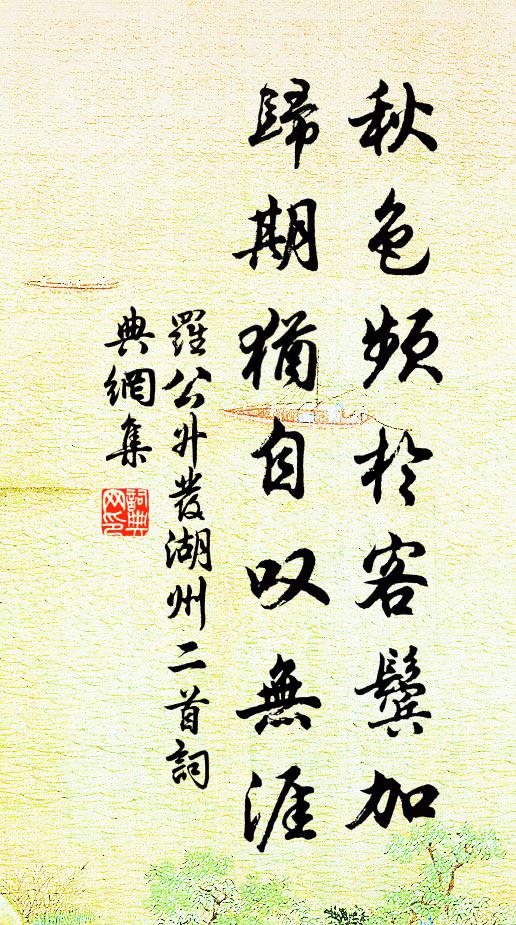 秋色频於客鬓加
歸期猶自叹無涯
羅公升發湖州二首詞
典網集
詞典网印